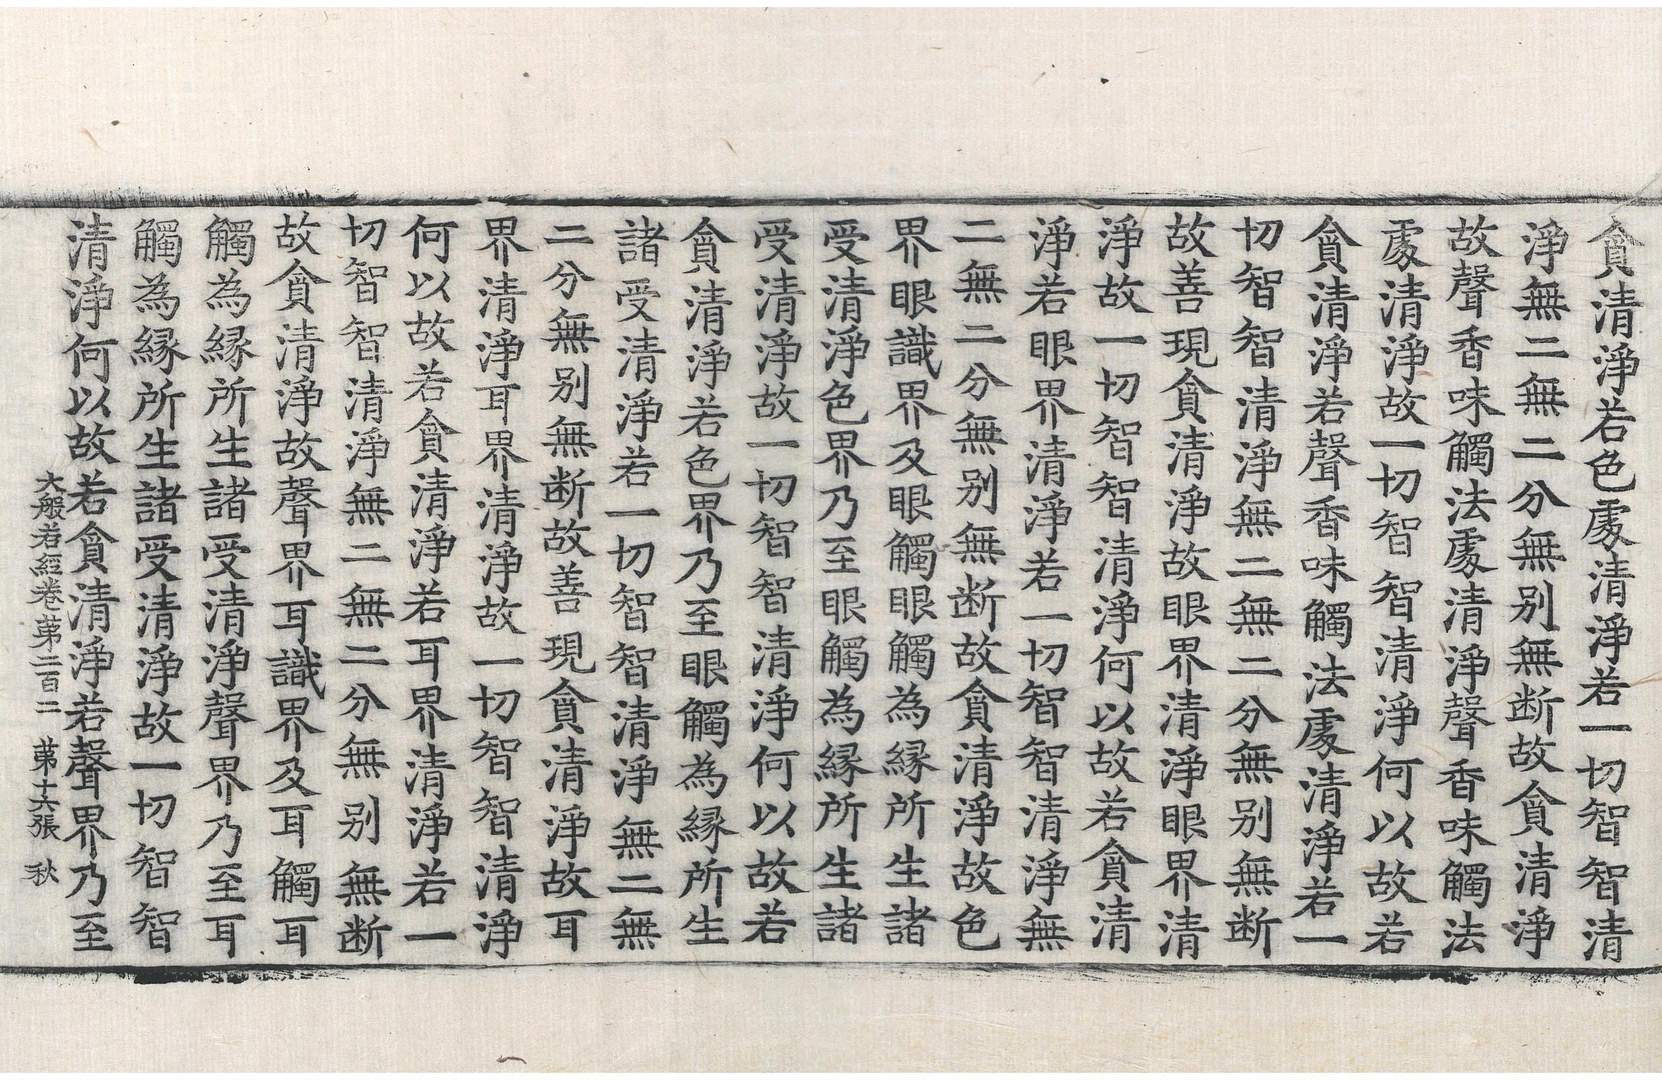 貪清淨若色處清淨若一切智智清
淨無二無二分無別無断故貪清淨
故聲香味觸法處清淨聲香味觸法
處清淨故一切智智清淨何以故若
貪清淨若聲香味觸法處清淨若一
切智智清淨無二無二分無別無断
故善現貪清淨故眼界清淨眼界清
淨故一切智智清淨何以故若貪清
淨若眼界清淨若一切智智清淨無
二無二分無别無断故貪清淨故色
界眼識界及眼觸眼觸為縁所生諸
受清淨色界乃至眼觸為縁所生諸
受清淨故一切智智清淨何以故若
貪清淨若色界乃至眼觸為縁所生
諸受清淨若一切智智清淨無二無
二分無别無断故善現貪清淨故耳
界清淨耳界清淨故一切智智清淨
何以故若貪清淨若耳界清淨若一
切智智清淨無二無二分無别無断
故貪清淨故聲界耳識界及耳觸耳
觸為縁所生諸受清淨聲界乃至耳
觸為縁所生諸受清淨故一切智智
清淨何以故若貪清淨若聲界乃至
大般若經卷苐二百二 苐十六張 秋